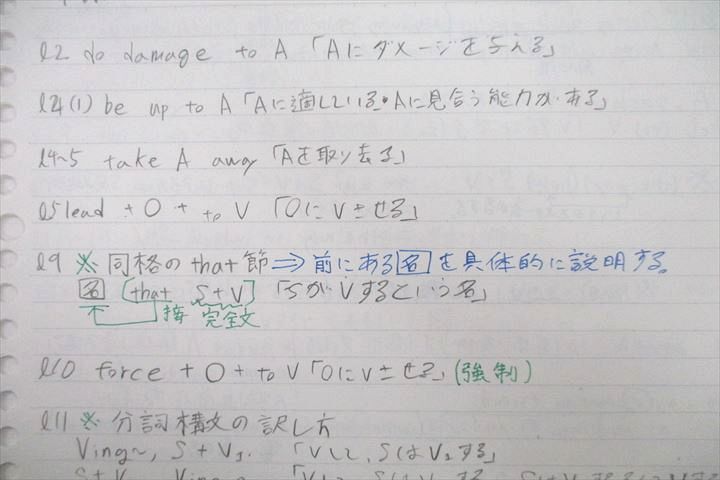 l2 do damage to A「Aにダメージを与える」
l4(1) be up to A「Aに適している・Aに見合う能力がある」
l4~5 take A away「Aを取り去る」
l5 lead + O + to V「OにVさせる」
l9 ※同格のthat節⇒前にある名を具体的に説明する。
名[that S+V]「SがVするという名」
接 完全文
l10 force + O + to V「OにVさせる」(強制)
l11 ※分詞構文の訳し方
Ving~, S + V₁.「Vして、SはV₁する」